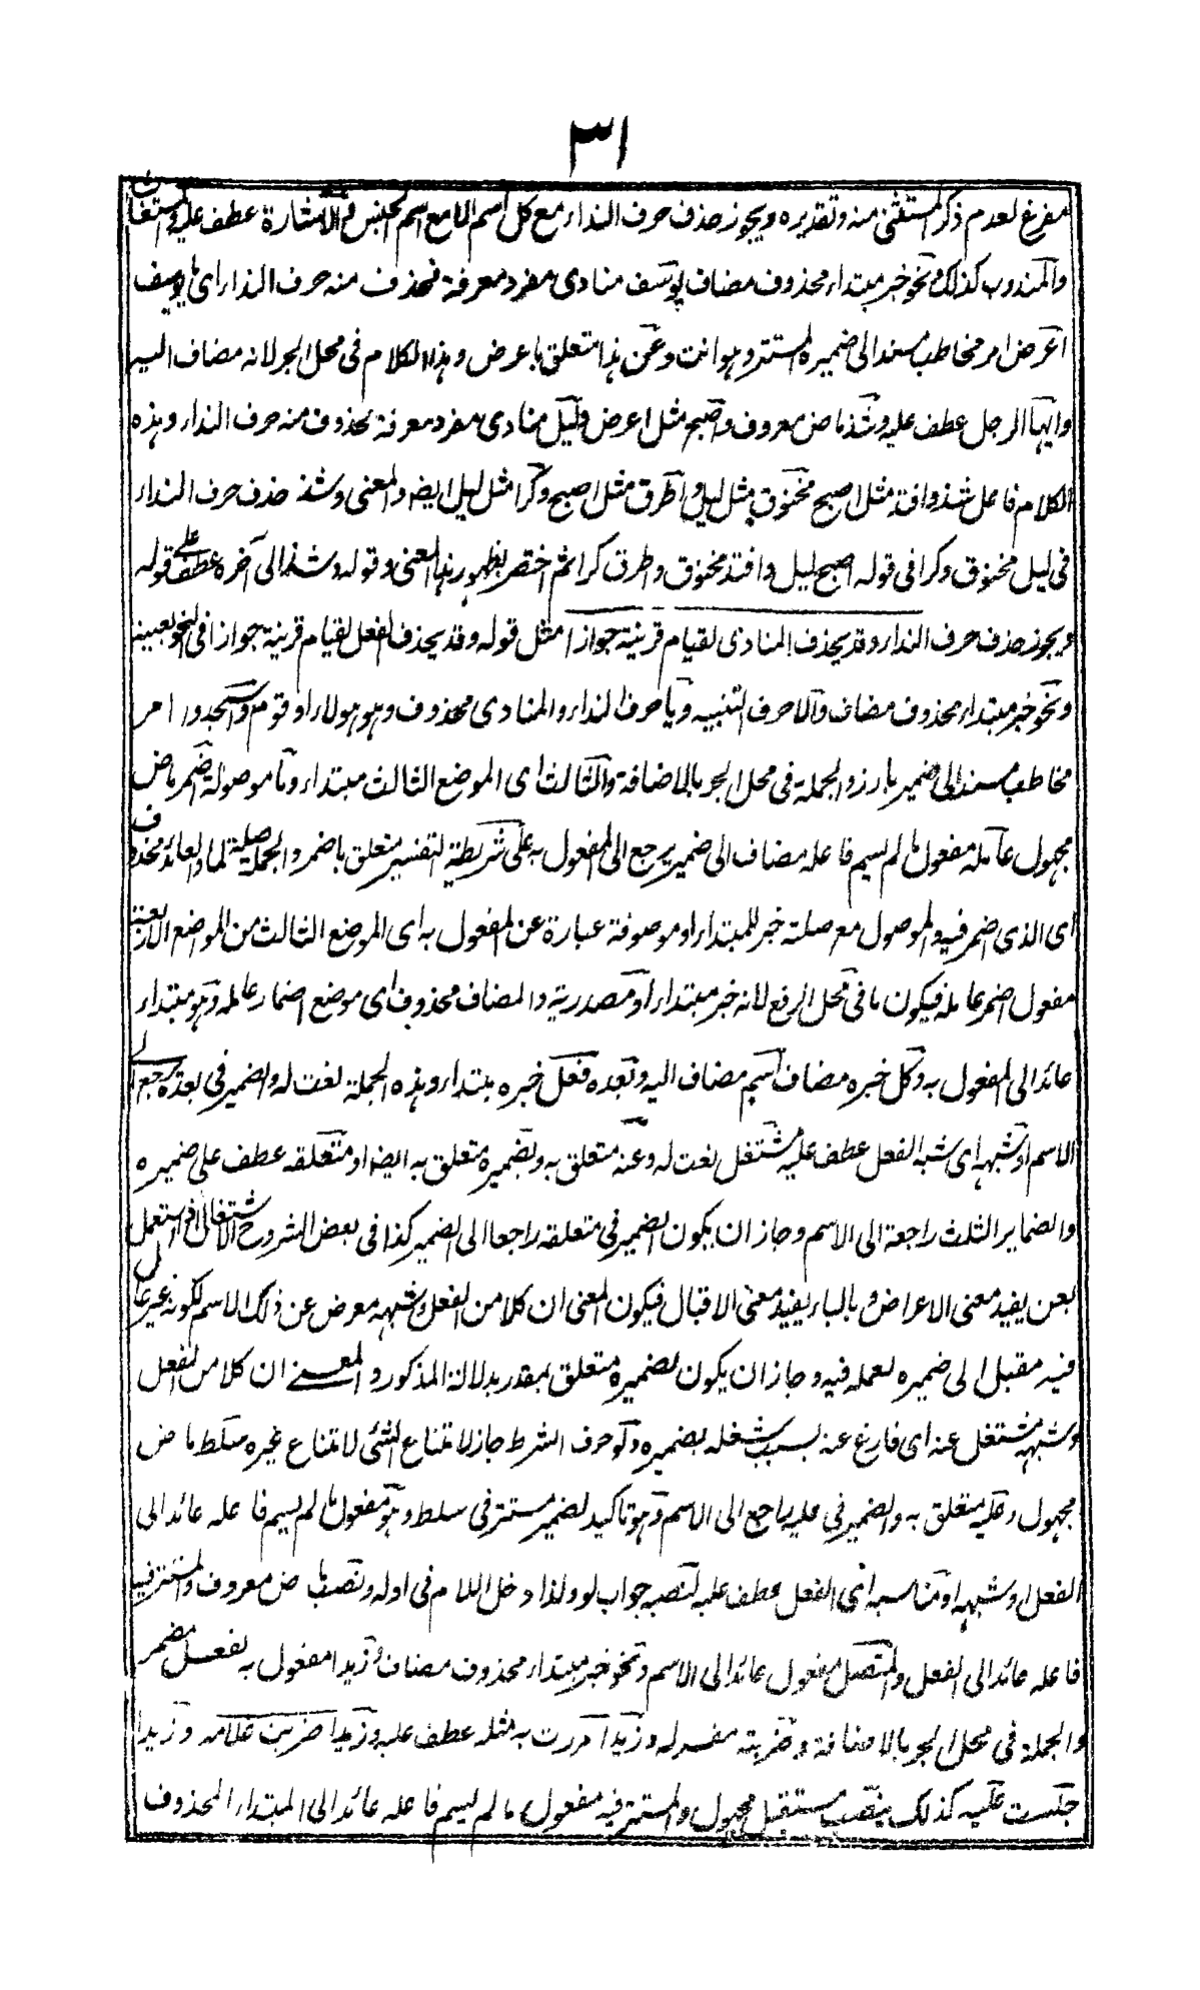 ٣١
مفرغ لعدم ذكر المستثنى منه وتقديره ويجوز حذف حرف النداء مع كل اسم الا مع اسم الجنس والاشارة عطف عليه والمستغاث
والمندوب كذلك ونحو خبر مبتداء محذوف مضاف يوسف منادى مفرد معرفة تحذف منه حرف النداء اى يا يوسف
اعرض امر مخاطب مسند الى ضميره المستتر وهو انت وعن هذا متعلق باعرض وهذا الكلام فى محل الجر لانه مضاف اليه
وايها الرجل عطف عليه وشذ ماض معروف واصبح مثل اعرض وليل منادى مفرد معرفة محذوف منه حرف النداء وهذه
الكلام فاعل شذ وافتد مثل اصبح مخنوق مثل ليل واطرق مثل اصبح وكرا مثل ليل ايضا والمعنى وشذ حذف حرف النداء
فى ليل مخنوق وكرا فى قوله اصبح ليل وافتد مخنوق واطرق كرا ثم اختصر لظهور هذا المعنى وقوله وشذ الى آخره عطف على قوله
ويجوز حذف حرف النداء وقد يحذف المنادى لقيام قرينة جوازا مثل قوله وقد يحذف الفعل لقيام قرينة جوازا فى النحو بعينه
ونحو خبر مبتداء محذوف مضاف والا حرف التنبيه ويا حرف النداء والمنادى محذوف وهو هولاء او قوم واسجدوا امر
مخاطب مسند الى ضمير بارز والجملة فى محل الجر بالاضافة والثالث اى الموضع الثالث مبتداء وما موصولة اضمر ماض
مجهول عامله مفعول ما لم يسم فاعله مضاف الى ضمير يرجع الى المفعول به على شريطة التفسير متعلق باضمر والجملة صلة لما والعائد محذوف
اى الذى اضمر فيه والموصول مع صلته خبر للمبتداء او موصوفة عبارة عن المفعول به اى الموضع الثالث من المواضع الاربعة
مفعول اضمر عامله فيكون ما فى محل الرفع لانه خبر مبتداء او مصدرية والمضاف محذوف اى موضع اضمار عامله وهو مبتداء
عائد الى المفعول به وكل خبره مضاف اسم مضاف اليه وبعده فعل خبره مبتداء وهذه الجملة نعت له والضمير فى بعده يرجع الى
الاسم او شبهه اى شبه الفعل عطف عليه مشتغل نعت له وعنه متعلق به وبضميره متعلق به ايضا او متعلقه عطف على ضميره
والضماير الثلث راجعة الى الاسم وجاز ان يكون الضمير فى متعلقه راجعا الى الضمير كذا فى بعض الشروح الاشتغال اذا استعمل
بعن يفيد معنى الاعراض وبالباء يفيد معنى الاقبال فيكون المعنى ان كلا من الفعل وشبهه معرض عن ذلك الاسم لكونه غير عامل
فيه مقبل الى ضميره لعمله فيه وجاز ان يكون لضميره متعلق بمقدر بدلالة المذكور والمعنى ان كلا من الفعل
وشبهه مشتغل عنه اى فارغ عنه بسبب شغله بضميره ولو حرف الشرط جاز لامتناع الشئى لامتناع غيره سلط ماض
مجهول وعليه متعلق به والضمير فى عليه راجع الى الاسم وهو تاكيد لضمير مستتر فى سلط وهو مفعول ما لم يسم فاعله عائد الى
الفعل او شبهه او مناسبه اى الفعل عطف عليه لنصبه جواب لو ولذا دخل اللام فى اوله ونصب ماض معروف والمستتر فيه
فاعله عائد الى الفعل والمتصل مفعول عائد الى الاسم ونحو خبر مبتداء محذوف مضاف وزيدا مفعول به لفعل مضمر
والجملة فى محل الجر بالاضافة وضربته مفسر له وزيدا مررت به مثله عطف عليه وزيدا ضربت غلامه وزيدا
جلست عليه كذلك ينصب مستقبل مجهول والمستتر فيه مفعول ما لم يسم فاعله عائد الى المبتداء المحذوف